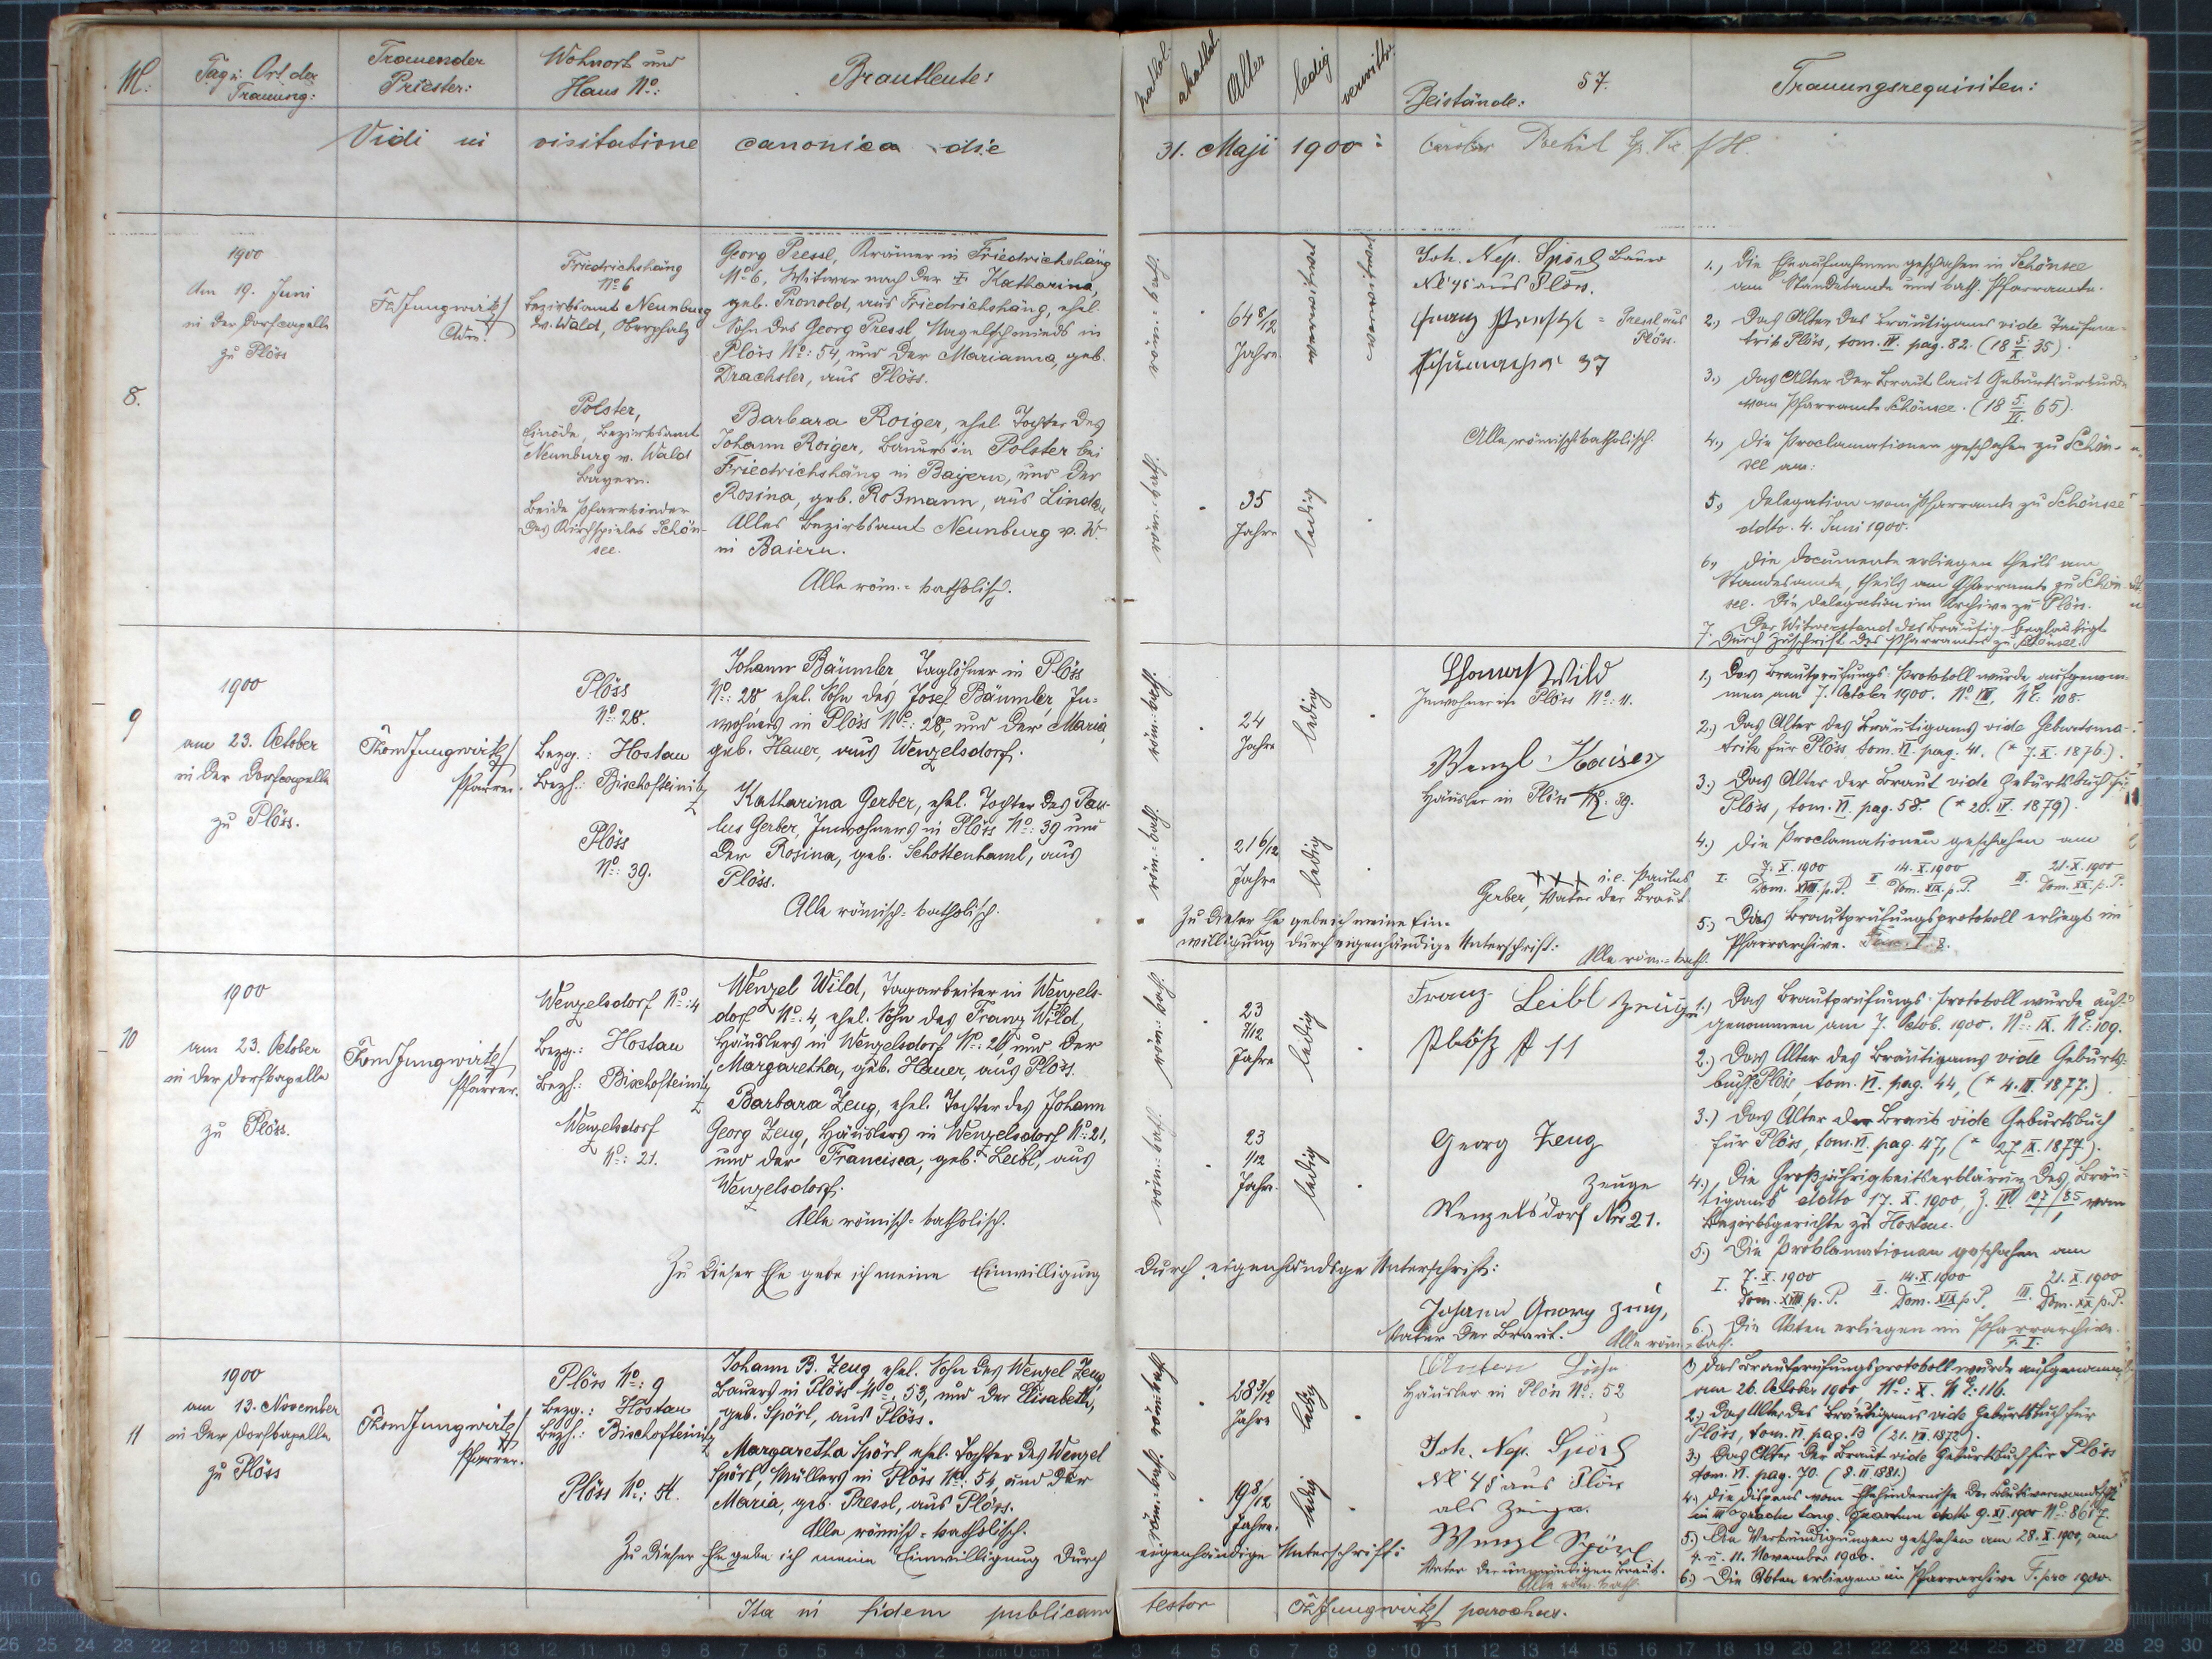 Nr.
Tag u. Ort der
Trauung:
Trauender
Priester:
Wohnort und
Haus No:
Brautleute:
kathol.
akathol.
Alter
ledig
verwittw.
Beistände:
57.
Trauungsrequisiten:
Vidi in visitatione canonica die 31. Maji 1900:
8.
1900
Am 19. Juni
in der Dorfcapelle
zu Plöss
Jungwirth
Adm.
Friedrichshäng
No 6
Bezirksamt Neunburg
v. Wald, Oberpfalz
Georg Pressl, Krämer in Friedrichshäng
No 6, Witwer nach der † Katharina,
geb. Pronold, aus Friedrichshäng, ehel.
Sohn des Georg Pressl, Nagelschmieds in
Plöss No: 54, und der Marianna, geb.
Drachsler, aus Plöss.
Polster,
Einöde, Bezirksamt
Neunburg v. Wald
Bayern.
Beide Pfarrkinder
des Kirchspieles Schön-
see.
Barbara Roiger, ehel. Tochter des
Johann Roiger, Bauers in Polster bei
Friedrichshäng in Bayern, und der
Rosina, geb. Roßmann, aus Linda,
Alles Bezirksamt Neunburg v. W.
in Baiern.
Alle röm.-katholisch.
röm.-kath.
64 8/12
Jahre
verwitwet
röm.-kath.
35
Jahre
ledig
Joh. Nep. Spörl Bauer
No 45 aus Plöss.
Franz Pressl = Pressl aus
Plöss.
Schumacher 37
Alle römischkatholisch.
1., Die Eheaufnahmen geschahen in Schönsee
am Standesamte und kath. Pfarramte.
2., Das Alter des Bräutigams vide Taufma-
trik Plöss, tom. IV. pag. 82. (18 5/X 35).
3., Das Alter der Braut laut Geburtsurkunde
vom Pfarramte Schönsee. (18 5/VI 65).
4., Die Proclamationen geschahen zu Schön-
see am:
5., Delegation vom Pfarramte zu Schönsee
ddto. 4. Juni 1900.
6., Die Documente erliegen theils am
Standesamte, theils am Pfarramte zu Schön-
see. Die Delegation im Archive zu Plöss.
7. Der Witwerstand des Bräutig. beglaubigt
durch Zuschrift des Pfarramtes zu Schönsee.
9
1900
am 23. October
in der Dorfcapelle
zu Plöss.
Jungwirth
Pfarrer.
Plöss
No: 28.
Bezg.: Hostau
Bezh.: Bischofteinitz
Johann Bäumler, Taglöhner in Plöss
No: 28 ehel. Sohn des Josef Bäumler, In-
wohners in Plöss No: 28, und der Maria,
geb. Hauer, aus Wenzelsdorf.
Plöss
No: 39.
Katharina Gerber, ehel. Tochter des Pau-
lus Gerber, Inwohners in Plöss No: 39 und
der Rosina, geb. Schottenhaml, aus
Plöss.
Alle römisch-katholisch.
röm.-kath.
24
Jahre
ledig
röm.-kath.
21 6/12
Jahre
ledig
Thomas Wild
Inwohner in Plöss No: 11.
Wenzl Kaiser
Häusler in Plöss No: 39.
+++ i.e. Paulus
Gerber, Vater der Braut
Zu dieser Ehe gebe ich meine Ein-
willigung durch eigenhändige Unterschrift:
Alle röm.-kath.
1., Das Brautprüfungs-Protokoll wurde aufgenom-
men am 7. October 1900. No: VIII, NE: 108.
2.) Das Alter des Bräutigams vide Geburtsma-
trik für Plöss tom. VI. pag. 41. (* 7. X. 1876).
3.) Das Alter der Braut vide Geburtsbuch für
Plöss, tom. VI. pag. 58. (* 20. IV. 1879).
4.) Die Proclamationen geschahen am
I. 7. X. 1900 Dom. XVIII. p. P. II. 14. X. 1900 Dom. XIX. p. P. III. 21. X. 1900 Dom. XX. p. P.
5.) Das Brautprüfungsprotokoll erliegt im
Pfarrarchive. Fasc. I. 8.
10
1900
am 23. October
in der Dorfkapelle
zu Plöss.
Jungwirth
Pfarrer.
Wenzelsdorf No: 4
Bezg.: Hostau
Bezh.: Bischofteinitz
Wenzel Wild, Tagarbeiter in Wenzels-
dorf No: 4, ehel. Sohn des Franz Wild,
Häuslers in Wenzelsdorf No: 26, und der
Margaretha, geb. Hauer, aus Plöss.
Wenzelsdorf
No: 21.
Barbara Zeug, ehel. Tochter des Johann
Georg Zeug, Häuslers in Wenzelsdorf No: 21,
und der Francisca, geb. Leibl, aus
Wenzelsdorf.
Alle römisch-katholisch.
röm.-kath.
23
7/12
Jahre
ledig
röm.-kath.
23
1/12
Jahre
ledig
Franz Leibl Zeuge
Plöß No 11
Georg Zeug
Zeuge
Wenzelsdorf Nro 21.
Zu dieser Ehe gebe ich meine Einwilligung durch eigenhändige Unterschrift:
Johann Georg Zeug,
Vater der Braut.
Alle röm.-kath.
1.) Das Brautprüfungs-Protokoll wurde auf-
genommen am 7. Octob. 1900. No: IX. NE: 109.
2.) Das Alter des Bräutigams vide Geburts-
buch Plöss, tom. VI. pag. 44, (* 4. III. 1877).
3.) Das Alter der Braut vide Geburtsbuch
für Plöss, tom. VI. pag. 47, (* 27. IX. 1877).
4.) Die Großjährigkeitserklärung des Bräu-
tigams ddto 17. X. 1900, vom
Bezirksgerichte zu Hostau.
5.) Die Proklamationen geschahen am
I. 7. X. 1900 Dom. XVIII. p. P. II. 14. X. 1900 Dom. XIX p. P. III. 21. X. 1900 Dom. XX. p. P.
6.) Die Akten erliegen im Pfarrarchive.
F. I.
11
1900
am 13. November
in der Dorfkapelle
zu Plöss
Jungwirth
Pfarrer.
Plöss No: 9
Bezg.: Hostau
Bezh.: Bischofteinitz
Johann B. Zeug, ehel. Sohn des Wenzel Zeug,
Bauers in Plöss No: 53, und der Elisabeth,
geb. Spörl, aus Plöss.
Plöss No: 54.
Margaretha Spörl ehel. Tochter des Wenzel
Spörl, Müllers in Plöss No: 54, und der
Maria, geb. Pressl, aus Plöss.
Alle römisch-katholisch.
röm.-kath.
28 3/12
Jahre
ledig
röm.-kath.
19 8/12
Jahre.
ledig
Anton
Häusler in Plöss No: 52
Joh. Nep. Spörl
No 45 aus Plöss
als Zeuge.
Zu dieser Ehe gebe ich meine Einwilligung durch eigenhändige Unterschrift:
Wenzl Spörl
Vater der unmündigen Braut.
Alle röm.-kath.
1) Das Brautprüfungsprotokoll wurde aufgenommen
am 26. October 1900 No: X. NE: 116.
2.) Das Alter des Bräutigams vide Geburtsbuch für
Plöss, tom. VI. pag. 13 (21. VII. 1872).
3.) Das Alter der Braut vide Geburtsbuch für Plöss
tom. VI. pag. 70. (8. II. 1881.)
4.) Die Dispens vom Ehehindernisse der Blutsverwandtschaft
im III° gradu tang. quartum ddto 9. XI. 1900 No: 8617.
5.) Die Verkündigungen geschahen am 28. X. 1900, am
4. u. 11. November 1900.
6.) Die Akten erliegen im Pfarrarchive F. pro 1900.
Ita in fidem publicam testor Jungwirth parochus.